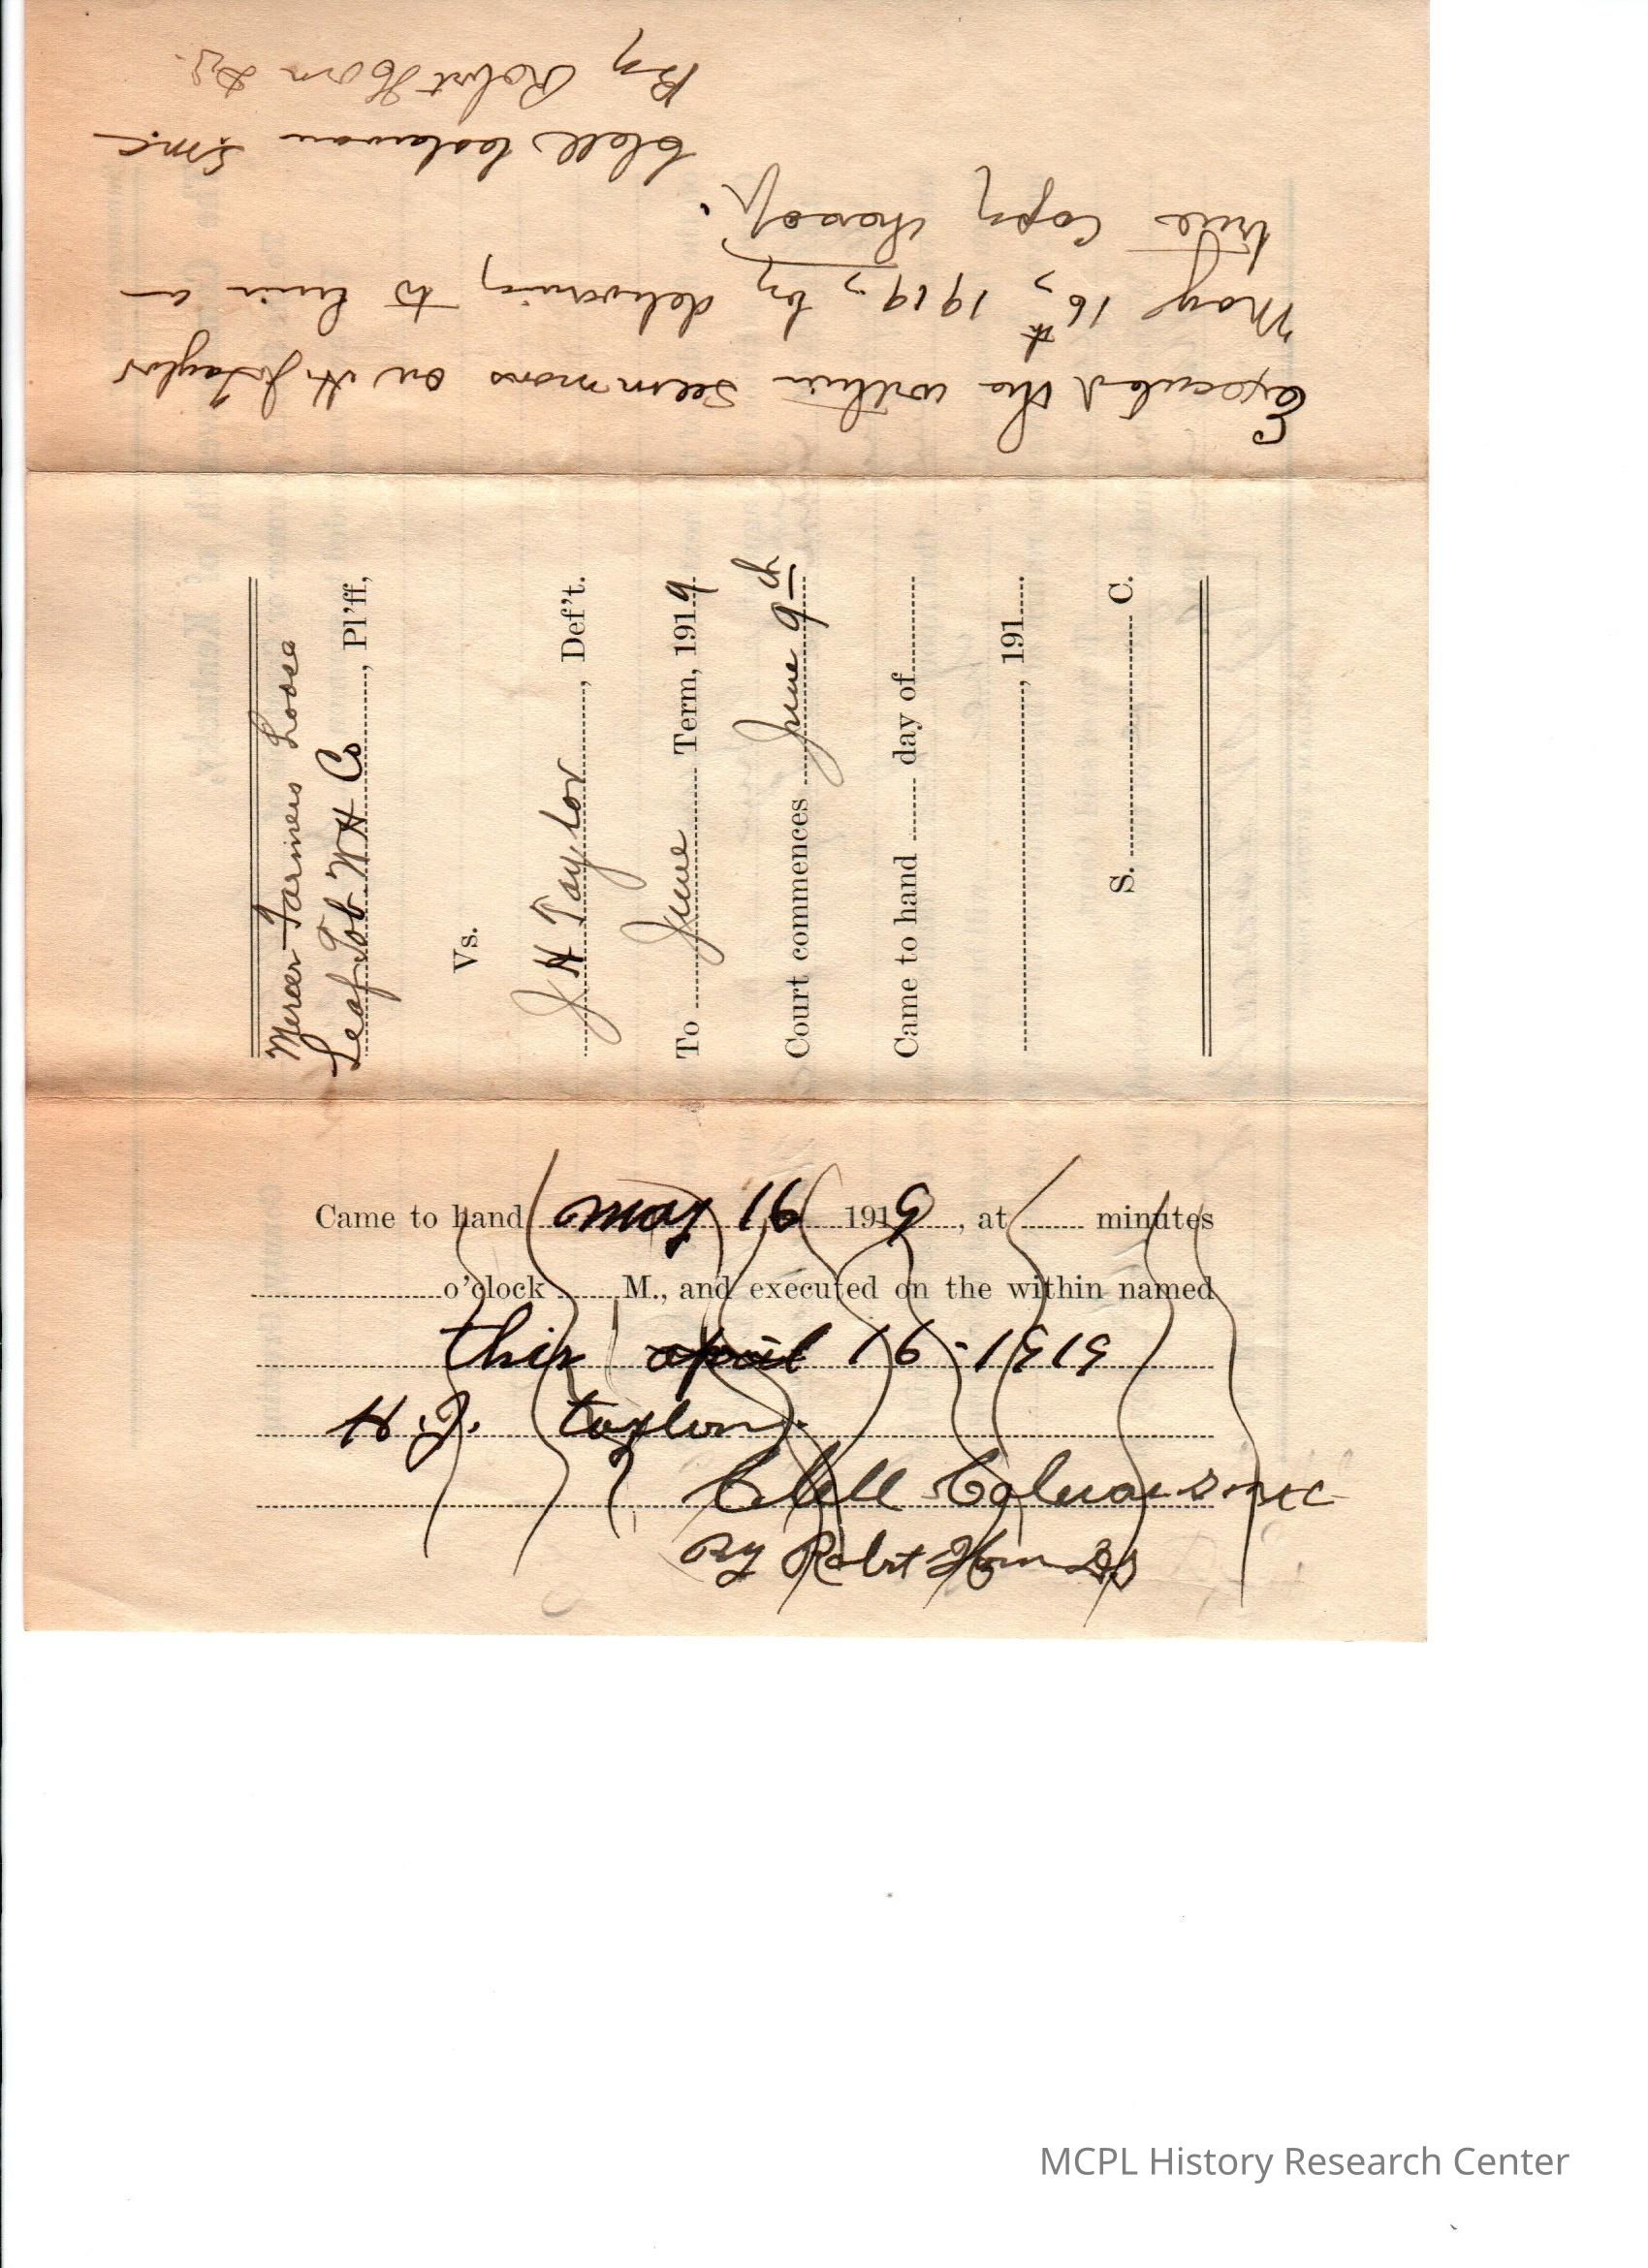 Executed the within summons on H. J. Taylor
May 16th, 1919, by delivering to him a
true copy thereof.
Clell Coleman S.M.C
By Robrt Horn D.S.
Mercer Farmers Loose
Leaf Tob. W H Co, Pl'ff,
Vs.
J H Taylor, Def't.
To June Term, 1919
Court commences June 9th
Came to hand day of
, 191
S. C.
Came to hand May 16 1919, at minutes
o'clock M., and executed on the within named
this april 16-1919
H.J. taylor.
Clell Coleman S.M.C
By Robrt Horn D.S
MCPL History Research Center